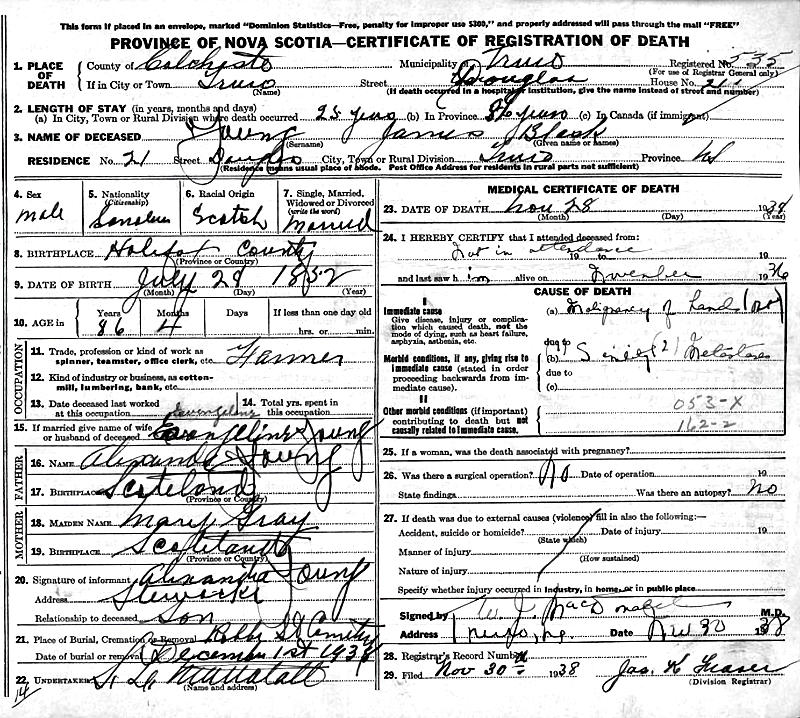 This form if placed in an envelope, marked "Dominion Statistics—Free, penalty for improper use $300," and properly addressed will pass through the mail "FREE"
PROVINCE OF NOVA SCOTIA—CERTIFICATE OF REGISTRATION OF DEATH
1. PLACE OF DEATH
County of Colchester Municipality of Truro Registered No. 535
(For use of Registrar General only)
If in City or Town Truro (Name) Street Douglas House No. 21
(If death occurred in a hospital or institution, give the name instead of street and number)
2. LENGTH OF STAY (in years, months and days)
(a) In City, Town or Rural Division where death occurred 25 years (b) In Province 86 years (c) In Canada (if immigrant)
3. NAME OF DECEASED Young (Surname) James Black (Given name or names)
RESIDENCE No. 21 Street Douglas City, Town or Rural Division Truro Province NS
(Residence means usual place of abode. Post Office Address for residents in rural parts not sufficient)
4. Sex
male
5. Nationality (Citizenship)
Canadian
6. Racial Origin
Scotch
7. Single, Married, Widowed or Divorced (write the word)
Married
8. BIRTHPLACE Halifax County
(Province or Country)
9. DATE OF BIRTH July 28 1852
(Month) (Day) (Year)
10. AGE in Years Months Days If less than one day old
86 4 hrs. or min.
OCCUPATION
11. Trade, profession or kind of work as spinner, teamster, office clerk, etc. Farmer
12. Kind of industry or business, as cotton-mill, lumbering, bank, etc.
13. Date deceased last worked at this occupation
14. Total yrs. spent in this occupation
Evangeline
15. If married give name of wife or husband of deceased Evangeline Young
FATHER
16. NAME Alexander Young
17. BIRTHPLACE Scotland
(Province or Country)
MOTHER
18. MAIDEN NAME Mary Gray
19. BIRTHPLACE Scotland
(Province or Country)
20. Signature of informant Alexander Young
Address Stewiacke
Relationship to deceased Son
21. Place of Burial, Cremation or Removal Cemetery
Date of burial or removal December 1st 1938
22. UNDERTAKER
(Name and address)
14
MEDICAL CERTIFICATE OF DEATH
23. DATE OF DEATH Nov 28 1938
(Month) (Day) (Year)
24. I HEREBY CERTIFY that I attended deceased from:
Not in attendance
19 to 19
and last saw him alive on November 1936
CAUSE OF DEATH
I
Immediate cause
Give disease, injury or complication which caused death, not the mode of dying, such as heart failure, asphyxia, asthenia, etc.
(a) Malignancy of
due to
Morbid conditions, if any, giving rise to immediate cause (stated in order proceeding backwards from immediate cause).
(b) Senility (2)
due to
(c)
II
Other morbid conditions (if important) contributing to death but not causally related to immediate cause.
053-X
162-2
25. If a woman, was the death associated with pregnancy?
26. Was there a surgical operation? No Date of operation 19
State findings Was there an autopsy? No
27. If death was due to external causes (violence) fill in also the following:—
Accident, suicide or homicide? Date of injury 19
(State which)
Manner of injury
(How sustained)
Nature of injury
Specify whether injury occurred in industry, in home, or in public place
Signed by W. J. MacDonald M.D.
Address Truro, N.S. Date Nov 30 1938
28. Registrar's Record Number
29. Filed Nov 30 1938 Jas. K Fraser
(Division Registrar)